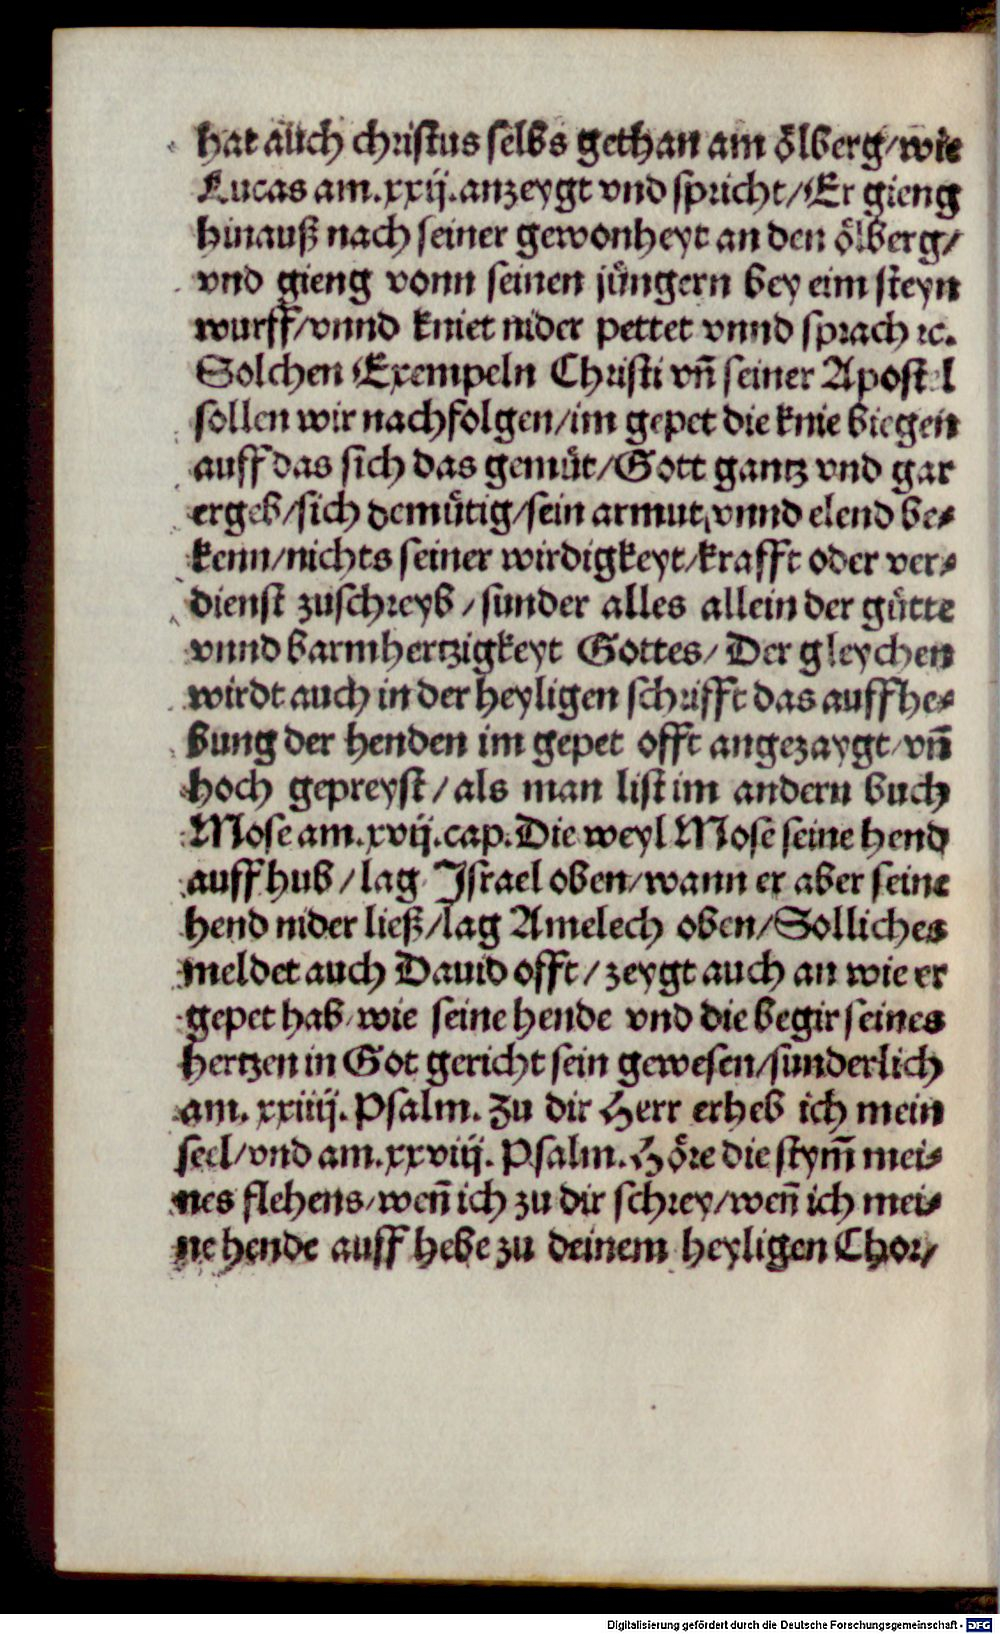 hat auch christus selbs gethan am ölberg/wie
Lucas am.xxij.anzeygt vnd spricht/Er gieng
hinauß nach seiner gewonheyt an den ölberg/
vnd gieng vonn seinen jüngern bey eim steyn
wurff/vnnd kniet nider pettet vnnd sprach ꝛc.
Solchen Exempeln Christi vn̄ seiner Apostel
sollen wir nachfolgen/im gepet die knie biegen
auff das sich das gemüt/Gott gantz vnd gar
ergeb/sich demütig/sein armut,vnnd elend be⸗
kenn/nichts seiner wirdigkeyt/krafft oder ver⸗
dienst zuschreyb/sunder alles allein der gütte
vnnd barmhertzigkeyt Gottes/Der gleychen
wirdt auch in der heyligen schrifft das auffhe⸗
bung der henden im gepet offt angezaygt/vn̄
hoch gepreyst/als man list im andern buch
Mose am.xvij.cap.Die weyl Mose seine hend
auffhub/lag Israel oben/wann er aber seine
hend nider ließ/lag Amelech oben/Solliches
meldet auch Dauid offt/zeygt auch an wie er
gepet hab/wie seine hende vnd die begir seines
hertzen in Got gericht sein gewesen/sunderlich
am. xxiiij. Psalm. Zu dir Herr erheb ich mein
seel/vnd am.xxviij. Psalm.Höre die stym̄ mei⸗
nes flehens/wen̄ ich zu dir schrey/wen̄ ich mei⸗
ne hende auff hebe zu deinem heyligen Chor/
Digitalisierung gefördert durch die Deutsche Forschungsgemeinschaft - DFG